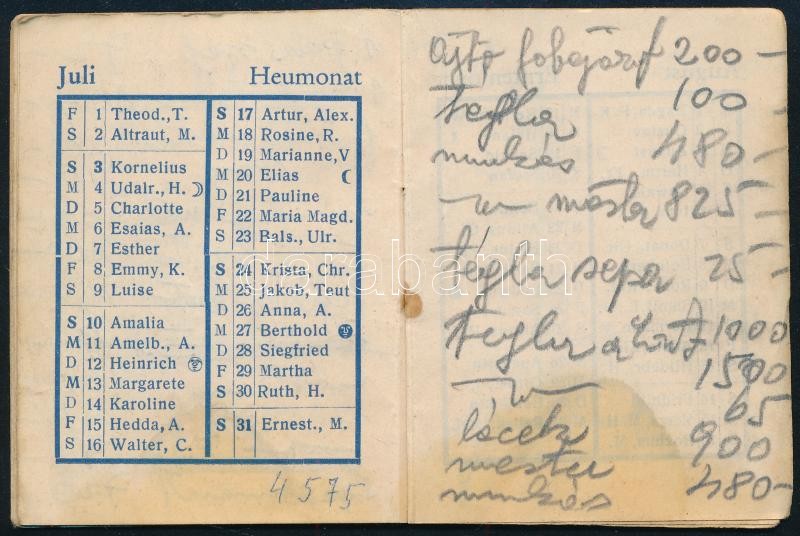 Juli Heumonat
F 1 Theod., T.
S 2 Altraut, M.
S 3 Kornelius
M 4 Udalr., H.
D 5 Charlotte
M 6 Esaias, A.
D 7 Esther
F 8 Emmy, K.
S 9 Luise
S 10 Amalia
M 11 Amelb., A.
D 12 Heinrich
M 13 Margarete
D 14 Karoline
F 15 Hedda, A.
S 16 Walter, C.
S 17 Artur, Alex.
M 18 Rosine, R.
D 19 Marianne, V
M 20 Elias
D 21 Pauline
F 22 Maria Magd.
S 23 Bals., Ulr.
S 24 Krista, Chr.
M 25 Jakob, Teut
D 26 Anna, A.
M 27 Berthold
D 28 Siegfried
F 29 Martha
S 30 Ruth, H.
S 31 Ernest., M.
4575
200-
tegla 100
munkás 480-
mester 825-
tégla 25-
tegla 1000
1500
lécek 65
mester 900
munkás 480-
darabanth